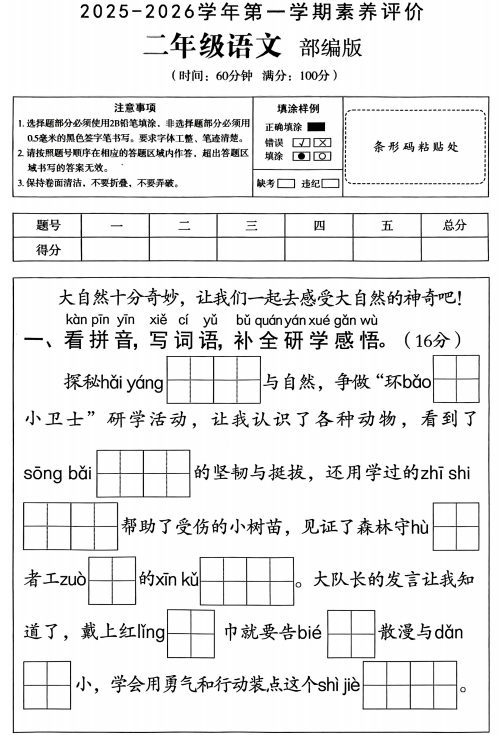 2025-2026学年第一学期素养评价
二年级语文 部编版
(时间：60分钟 满分：100分)
注意事项
1. 选择题部分必须使用2B铅笔填涂，非选择题部分必须用
0.5毫米的黑色签字笔书写。要求字体工整、笔迹清楚。
2. 请按照题号顺序在相应的答题区域内作答，超出答题区
域书写的答案无效。
3. 保持卷面清洁，不要折叠，不要弄破。
填涂样例
正确填涂
错误
填涂
缺考 违纪
条形码粘贴处
题号 一 二 三 四 五 总分
得分
大自然十分奇妙，让我们一起去感受大自然的神奇吧！
kàn pīn yīn xiě cí yǔ bǔ quán yán xué gǎn wù
一、看拼音，写词语，补全研学感悟。(16分)
探秘hǎi yáng 与自然，争做“环bǎo
小卫士”研学活动，让我认识了各种动物，看到了
sōng bǎi 的坚韧与挺拔，还用学过的zhī shi
帮助了受伤的小树苗，见证了森林守hù
者工zuò 的xīn kǔ 。大队长的发言让我知
道了，戴上红lǐng 巾就要告bié 散漫与dǎn
小，学会用勇气和行动装点这个shì jiè 。